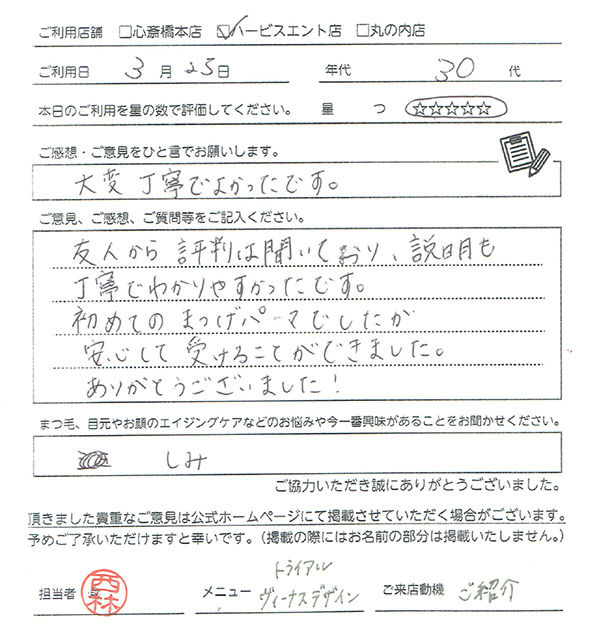 ご利用店舗 □心斎橋本店 ☑ハービスエント店 □丸の内店
ご利用日 3月25日 年代 30代
本日のご利用を星の数で評価してください。 星 つ ☆☆☆☆☆
ご感想・ご意見をひと言でお願いします。
大変丁寧でよかったです。
ご意見、ご感想、ご質問等をご記入ください。
友人から評判は聞いており、説明も
丁寧でわかりやすかったです。
初めてのまつげパーマでしたが
安心して受けることができました。
ありがとうございました!
まつ毛、目元やお顔のエイジングケアなどのお悩みや今一番興味があることをお聞かせください。
しみ
ご協力いただき誠にありがとうございました。
頂きました貴重なご意見は公式ホームページにて掲載させていただく場合がございます。
予めご了承いただけますと幸いです。(掲載の際にはお名前の部分は掲載いたしません。)
担当者 西林 メニュー トライアル ヴィーナスデザイン ご来店動機 ご紹介